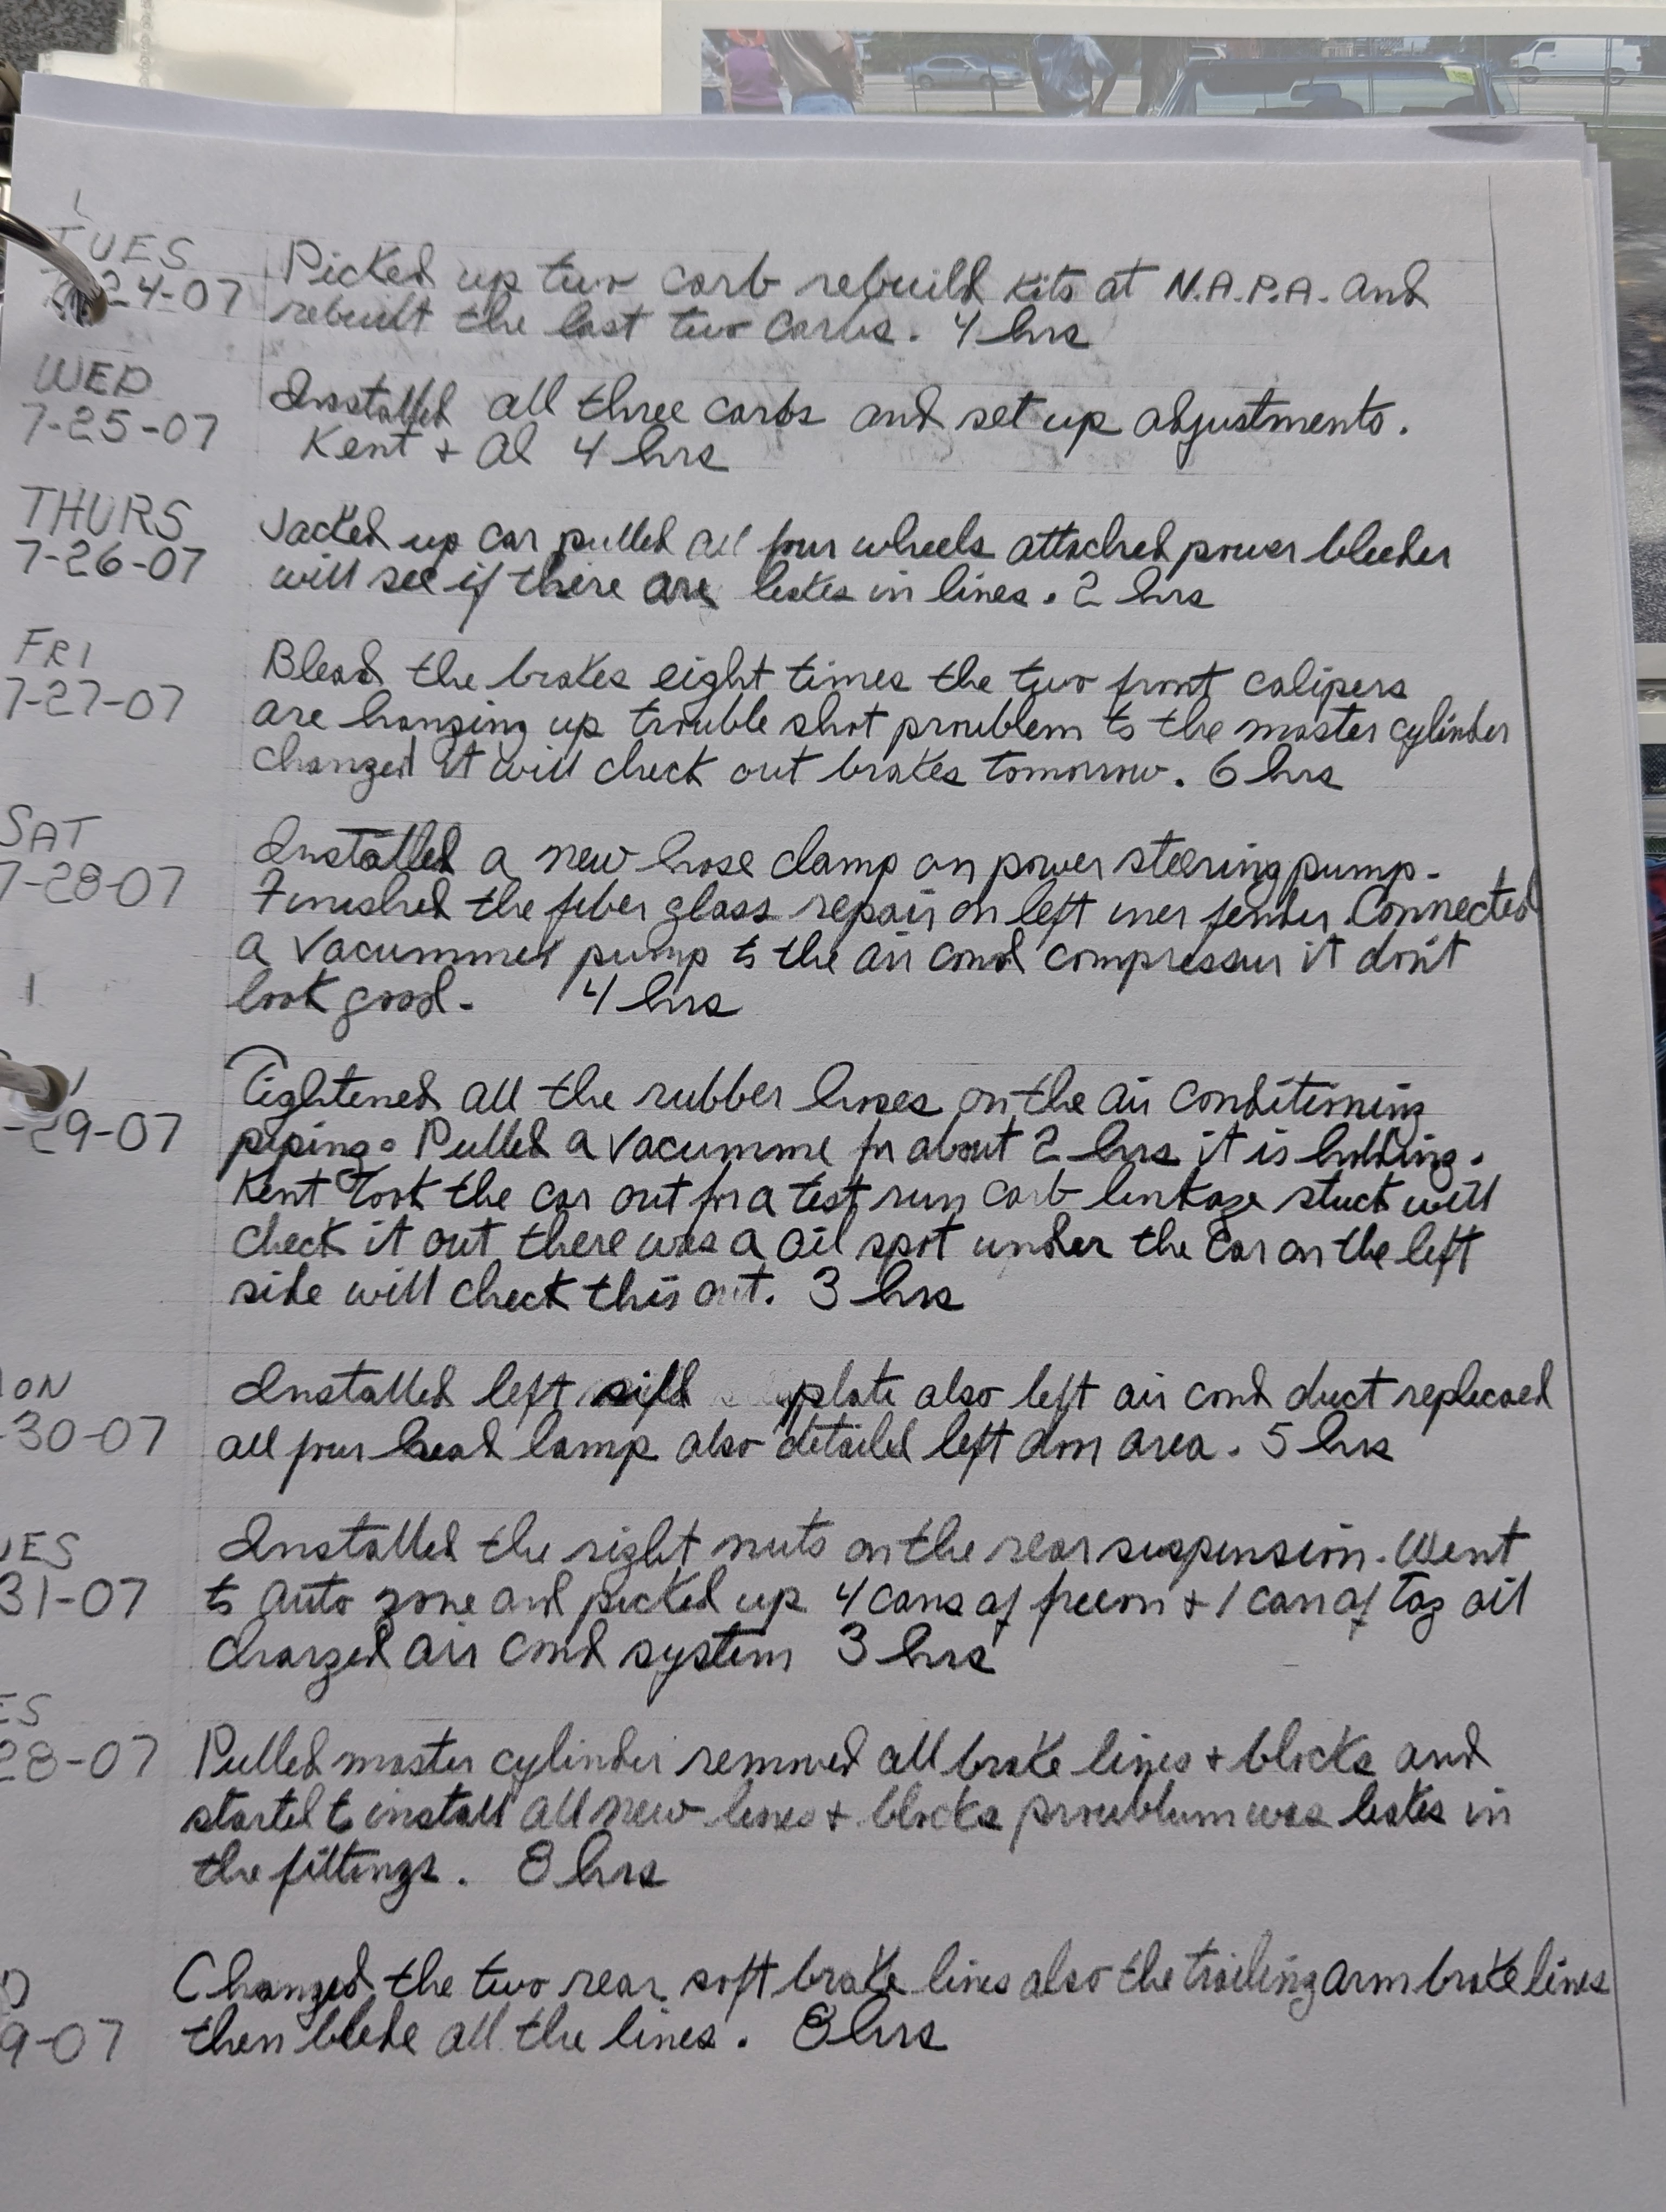 TUES
24-07
Picked up two carb rebuild kits at N.A.P.A. and
rebuilt the last two carbs. 4 hrs
WED
7-25-07
Installed all three carbs and set up adjustments.
Kent + Al 4 hrs
THURS
7-26-07
Jacked up car pulled all four wheels attached power bleeder
will see if there are leakes in lines. 2 hrs
FRI
7-27-07
Blead the brakes eight times the two front calipers
are hanging up trouble shot proublem to the master cylinder
changed it will check out brakes tomorrow. 6 hrs
SAT
7-28-07
Installed a new hose clamp on power steering pump.
Finished the fiber glass repair on left iner fender. Connected
a vacummer pump to the air cond compressur it don't
look good. 4 hrs
-29-07
Tightened all the rubber hoses on the air conditioning
piping. Pulled a vacumme for about 2 hrs it is holding.
Kent took the car out for a test run carb linkage stuck will
check it out there was a oil spot under the car on the left
side will check this out. 3 hrs
ON
-30-07
Installed left plate also left air cond duct replecaed
all four head lamp also detailed left door area. 5 hrs
UES
31-07
Installed the right nuts on the rear suspension. Went
to auto zone and picked up 4 cans of freeon + 1 can of Tag oil
charged air cond system 3 hrs
ES
28-07
Pulled master cylinder removed all brake lines + blocks and
started to install all new lines + blocks proublum was leakes in
the fittings. 8 hrs
D
9-07
Changed the two rear soft brake lines also the trailing arm brake lines
then blede all the lines. 8 hrs